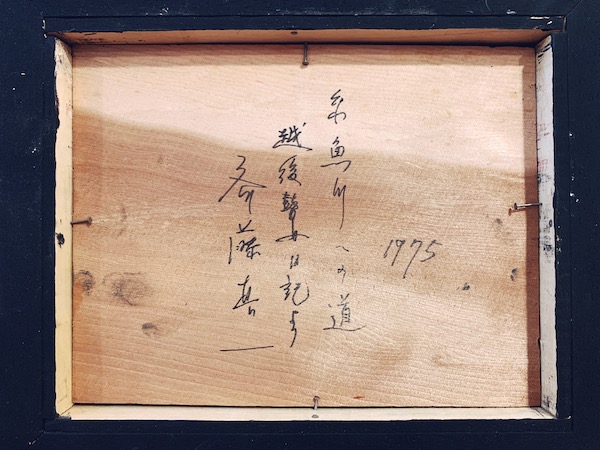 1975
糸魚川への道
越後瞽女日記より
斉藤真一